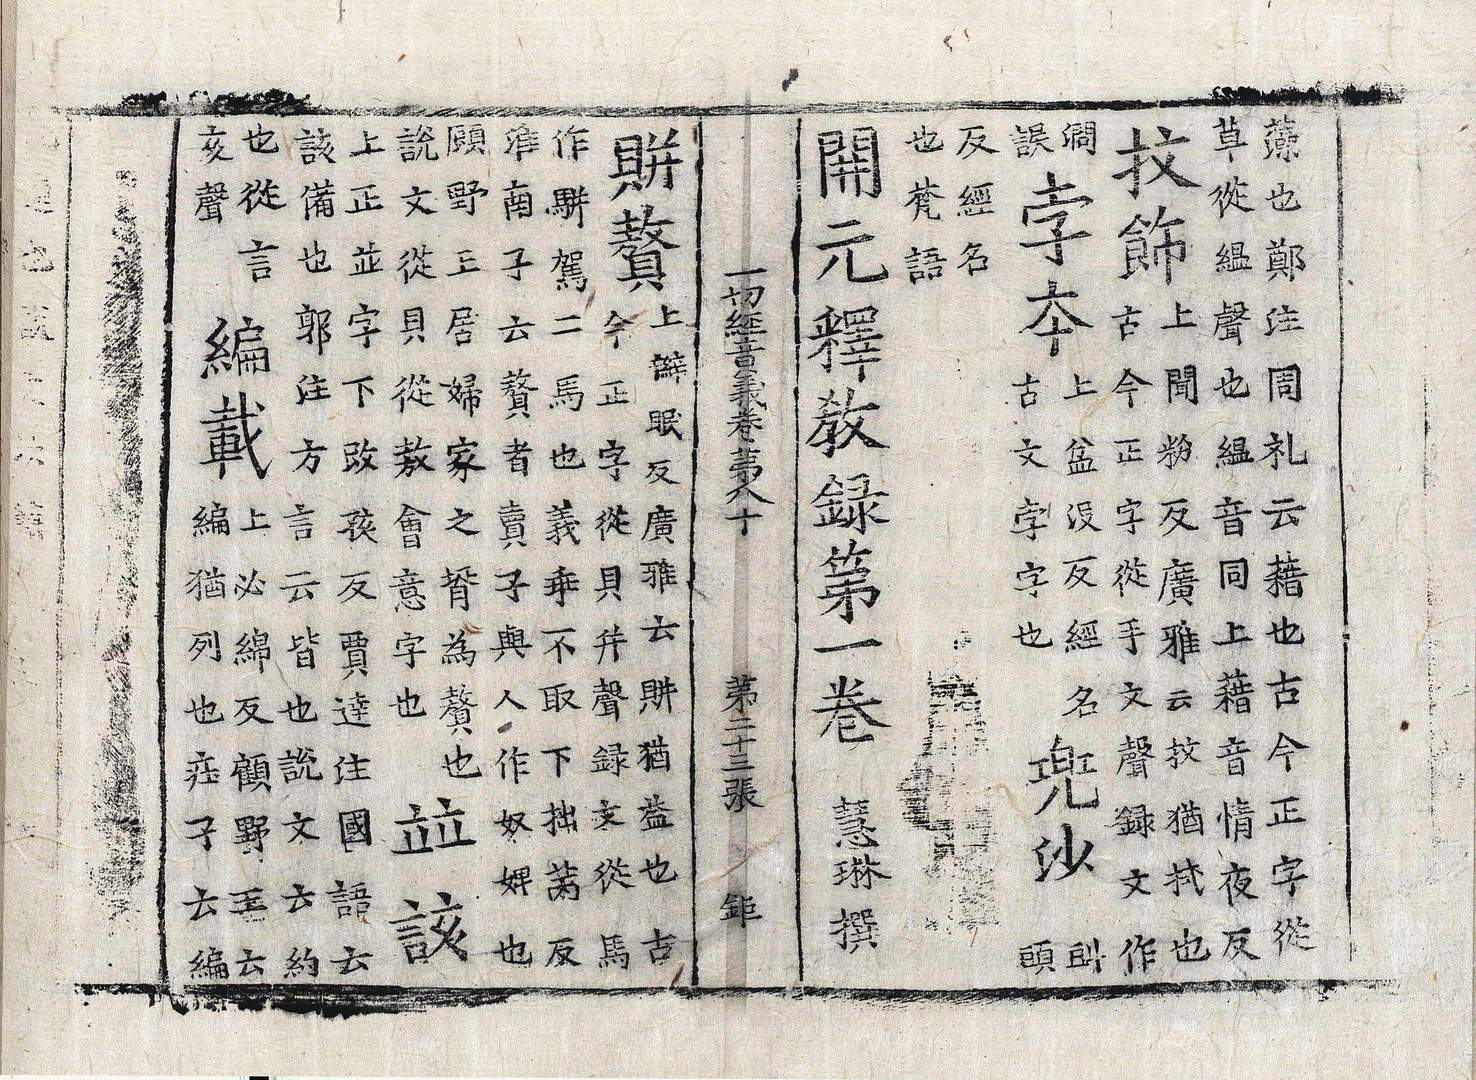 也鄭注周礼云藉也古今正字從
草從縕聲也縕音同上藉音情夜反
抆飾 上聞粉反廣雅云抆猶拭也
古今正字從手文聲録文作
澗 孛本 上盆没反經名 兜沙
誤 古文孛字也 頭
反經名
也梵語
開元釋教録第一卷 慧琳撰
一切經音義卷第八十 第二十三張 鉅
賆贅 上辯眠反廣雅云賆猶益也古
今正字從貝并聲録文從馬
作駢駕二馬也義乖不取下拙芮反
淮南子云贅者賣子與人作奴婢也
顧野王居婦家之壻為贅也 並該
說文從貝從敖會意字也
上正並字下改孩反賈逵注國語云
該備也郭注方言云皆也說文云約
也從言 編載 上必綿反顧野王云
亥聲 編猶列也莊子云編